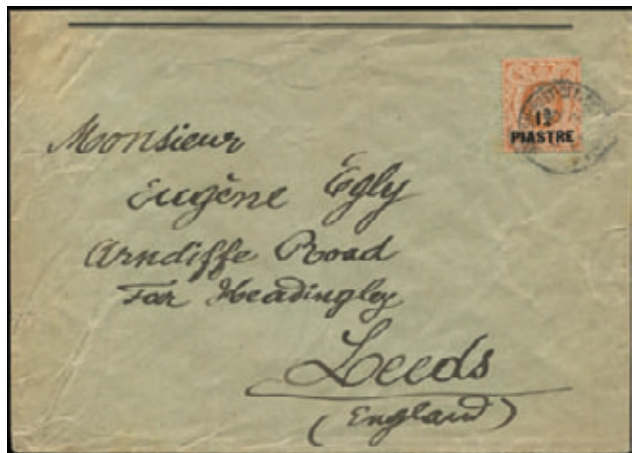 PIASTRE
Monsieur
Eugène Egly
Arndiffe Road
Far Headingley
Leeds
(England)